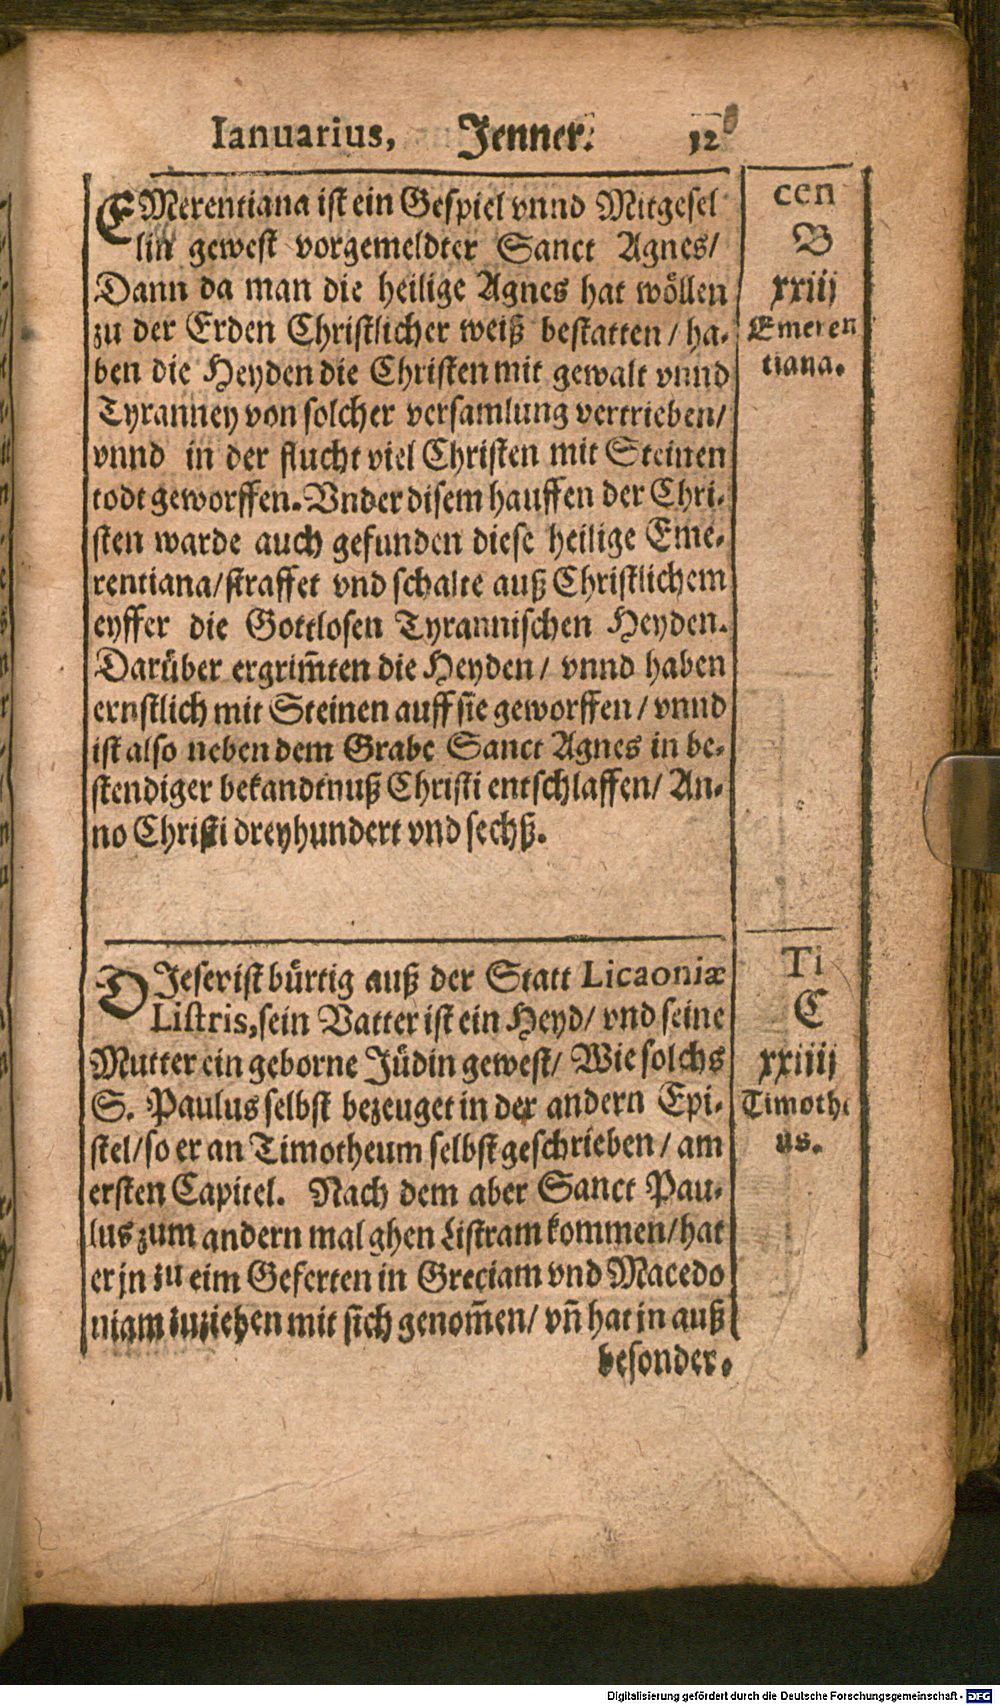 Ianuarius, Jenner. 12
EMerentiana ist ein Gespiel vnnd Mitgesel
lin gewest vorgemeldter Sanct Agnes/
Dann da man die heilige Agnes hat wöllen
zu der Erden Christlicher weiß bestatten/ ha-
ben die Heyden die Christen mit gewalt vnnd
Tyranney von solcher versamlung vertrieben/
vnnd in der flucht viel Christen mit Steinen
todt geworffen. Vnder disem hauffen der Chri-
sten warde auch gefunden diese heilige Eme-
rentiana/ straffet vnd schalte auß Christlichem
eyffer die Gottlosen Tyrannischen Heyden.
Darüber ergrim̃ten die Heyden/ vnnd haben
ernstlich mit Steinen auff sie geworffen/ vnnd
ist also neben dem Grabe Sanct Agnes in be-
stendiger bekandtnuß Christi entschlaffen/ An-
no Christi dreyhundert vnd sechß.
cen
B
xxiij
Emeren
tiana.
DIeser ist bürtig auß der Statt Licaoniæ
Listris, sein Vatter ist ein Heyd/ vnd seine
Mutter ein geborne Jüdin gewest/ Wie solchs
S. Paulus selbst bezeuget in der andern Epi-
stel/ so er an Timotheum selbst geschrieben/ am
ersten Capitel. Nach dem aber Sanct Pau-
lus zum andern mal ghen Listram kommen/ hat
er jn zu eim Geferten in Greciam vnd Macedo
niam zuziehen mit sich genom̃en/ vñ hat in auß
besonder.
Ti
C
xxiiij
Timothe
us.
Digitalisierung gefördert durch die Deutsche Forschungsgemeinschaft - DFG